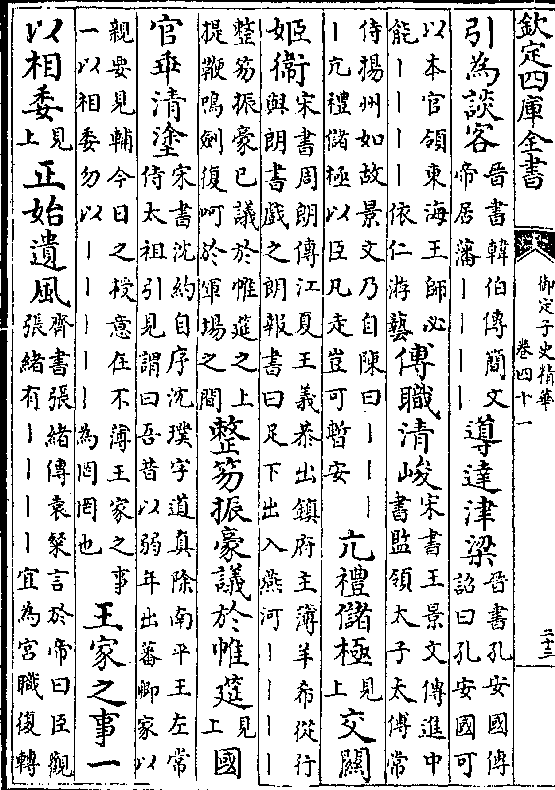 欽定四庫全書
御定子史精華
卷四十一
二十三
引為談客
晉書韓伯傳簡文
帝居藩丨丨丨丨
導達津梁
晉書孔安國傳
詔曰孔安國可
以本官領東海王師必
能丨丨丨丨依仁游藝
傅職清峻
宋書王景文傳進中
書監領太子太傅常
侍揚州如故景文乃自陳曰丨丨丨
丨亢禮儲極以臣凡走豈可暫安
亢禮儲極
見
上
交關
姬衞
宋書周朗傳江夏王義恭出鎮府主簿羊希從行
與朗書戲之朗報書曰足下出入燕河丨丨丨丨
整笏振豪已議於帷筵之上
提鞭鳴劍復呵於軍場之間
整笏振豪議於帷筵
見
上
國
官乖清塗
宋書沈約自序沈璞字道真除南平王左常
侍太祖引見謂曰吾昔以弱年出蕃卿家以
親要見輔今日之授意在不薄王家之事
一以相委勿以丨丨丨丨丨為罔罔也
王家之事一
以相委
見
上
正始遺風
齊書張緒傳袁粲言於帝曰臣觀
張緒有丨丨丨丨宜為宮職復轉